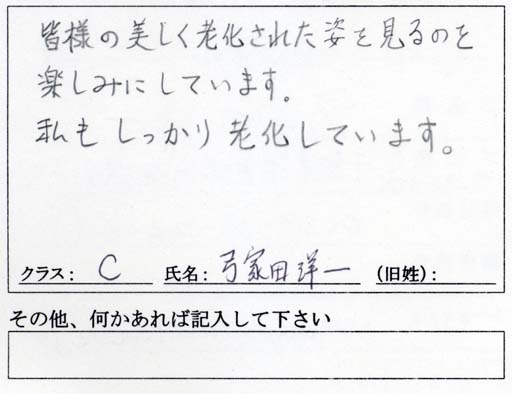 皆様の美しく老化された姿を見るのを
楽しみにしています。
私もしっかり老化しています。
クラス： C 氏名： 弓家田洋一 （旧姓）：
その他、何かあれば記入して下さい